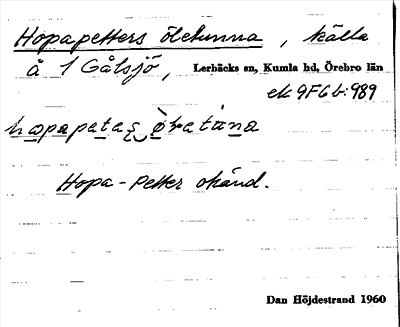 Hopapetters öletunna, källa
å 1 Gålsjö, Lerbäcks sn, Kumla hd, Örebro län
ek 9F6b:989
Hopa-Petter okänd.
Dan Höjdestrand 1960